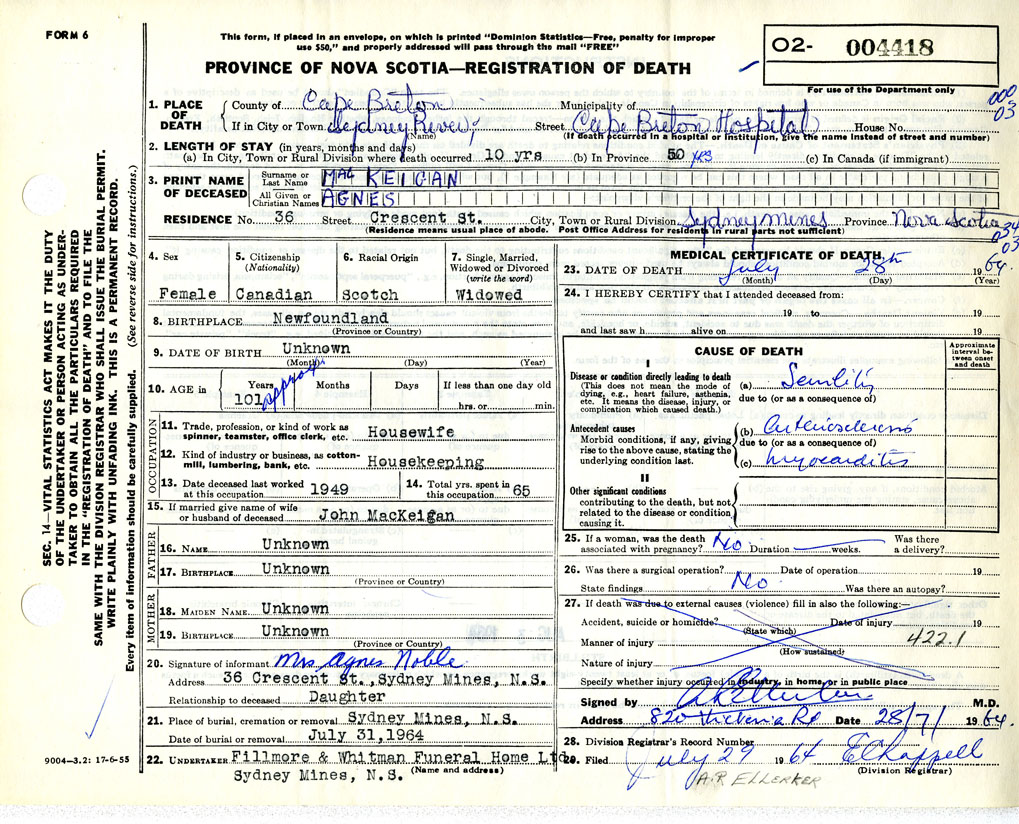 FORM 6
This form, if placed in an envelope, on which is printed "Dominion Statistics—Free, penalty for improper
use $50," and properly addressed will pass through the mail "FREE"
O2- 004418
PROVINCE OF NOVA SCOTIA—REGISTRATION OF DEATH
For use of the Department only
000
03
1. PLACE OF DEATH County of Cape Breton Municipality of
If in City or Town Sydney River, Street Cape Breton Hospital House No.
(Name) (If death occurred in a hospital or institution, give the name instead of street and number)
2. LENGTH OF STAY (in years, months and days)
(a) In City, Town or Rural Division where death occurred 10 yrs (b) In Province 50 yrs (c) In Canada (if immigrant)
3. PRINT NAME OF DECEASED
Surname or Last Name Mac KEIGAN
All Given or Christian Names AGNES
RESIDENCE No. 36 Street Crescent St. City, Town or Rural Division Sydney Mines Province Nova Scotia
(Residence means usual place of abode. Post Office Address for residents in rural parts not sufficient)
034
03
4. Sex
Female
5. Citizenship
(Nationality)
Canadian
6. Racial Origin
Scotch
7. Single, Married, Widowed or Divorced
(write the word)
Widowed
8. BIRTHPLACE Newfoundland
(Province or Country)
9. DATE OF BIRTH Unknown
(Month) (Day) (Year)
10. AGE in Years Months Days If less than one day old
101 approx hrs. or min.
OCCUPATION
11. Trade, profession, or kind of work as
spinner, teamster, office clerk, etc. Housewife
12. Kind of industry or business, as cotton-
mill, lumbering, bank, etc. Housekeeping
13. Date deceased last worked at this occupation 1949
14. Total yrs. spent in this occupation 65
15. If married give name of wife
or husband of deceased John MacKeigan
FATHER
16. NAME Unknown
17. BIRTHPLACE Unknown
(Province or Country)
MOTHER
18. MAIDEN NAME Unknown
19. BIRTHPLACE Unknown
(Province or Country)
20. Signature of informant Mrs Agnes Noble
Address 36 Crescent St., Sydney Mines, N.S.
Relationship to deceased Daughter
21. Place of burial, cremation or removal Sydney Mines, N.S.
Date of burial or removal July 31,1964
22. UNDERTAKER Fillmore & Whitman Funeral Home Ltd.
Sydney Mines, N.S. (Name and address)
MEDICAL CERTIFICATE OF DEATH
23. DATE OF DEATH July 28th 1964.
(Month) (Day) (Year)
24. I HEREBY CERTIFY that I attended deceased from:
19 to 19
and last saw h alive on 19
CAUSE OF DEATH
Approximate interval between onset and death
I
Disease or condition directly leading to death
(This does not mean the mode of
dying, e.g., heart failure, asthenia,
etc. It means the disease, injury, or
complication which caused death.)
(a) Senility
due to (or as a consequence of)
Antecedent causes
Morbid conditions, if any, giving
rise to the above cause, stating the
underlying condition last.
(b) Arteriosclerosis
due to (or as a consequence of)
(c) Myocarditis
II
Other significant conditions
contributing to the death, but not
related to the disease or condition
causing it.
25. If a woman, was the death
associated with pregnancy? No Duration weeks. Was there a delivery?
26. Was there a surgical operation? Date of operation 19
No
State findings Was there an autopsy?
27. If death was due to external causes (violence) fill in also the following:—
Accident, suicide or homicide? Date of injury 19
(State which)
Manner of injury 422.1
(How sustained)
Nature of injury
Specify whether injury occurred in industry, in home, or in public place
Signed by M.D.
Address 820 Victoria Rd Date 28/7/ 1964.
28. Division Registrar's Record Number
29. Filed July 29 1964 E Chappell
(Division Registrar)
A.P. ELLERKER
SEC. 14—VITAL STATISTICS ACT MAKES IT THE DUTY
OF THE UNDERTAKER OR PERSON ACTING AS UNDER-
TAKER TO OBTAIN ALL THE PARTICULARS REQUIRED
IN THE "REGISTRATION OF DEATH" AND TO FILE THE
SAME WITH THE DIVISION REGISTRAR WHO SHALL ISSUE THE BURIAL PERMIT.
WRITE PLAINLY WITH UNFADING INK. THIS IS A PERMANENT RECORD.
Every item of information should be carefully supplied. (See reverse side for instructions.)
9004—3.2: 17-6-55